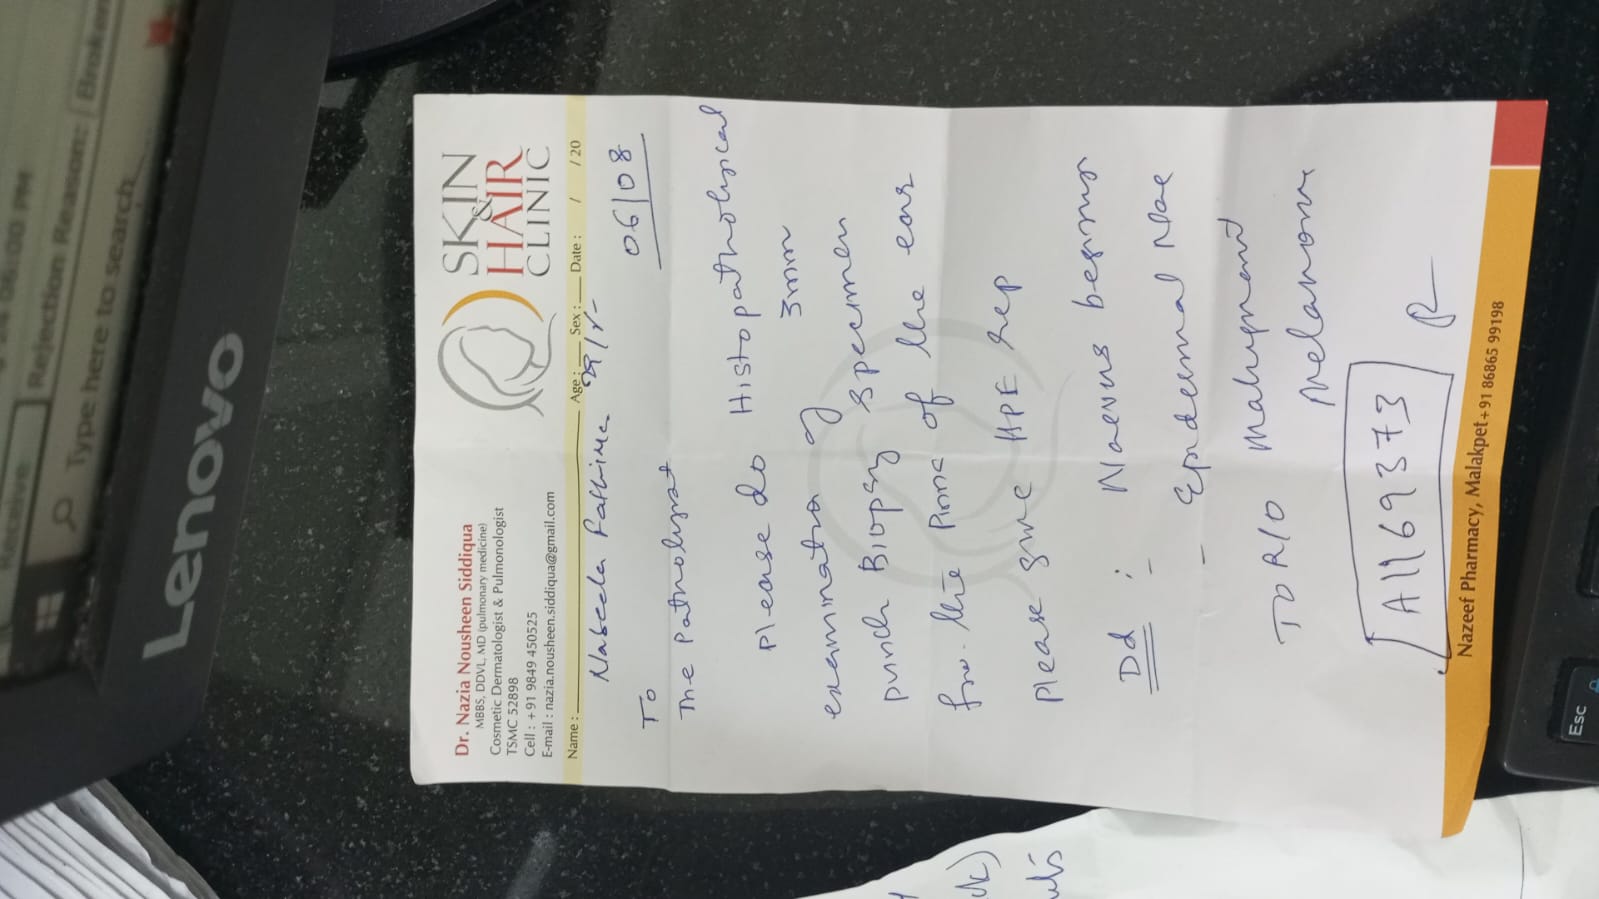 Receive
06:00 PM
Rejection Reason:
Broken
Type here to search
Lenovo
Dr. Nazia Nousheen Siddiqua
MBBS, DDVL, MD (pulmonary medicine)
Cosmetic Dermatologist & Pulmonologist
TSMC 52898
Cell : +91 9849 450525
E-mail : nazia.nousheen.siddiqua@gmail.com
SKIN
&
HAIR
CLINIC
Name : Age : Sex : Date : / / 20
Nabeela Fathima
06/08
To
The Pathologist
Please do Histopathological
3mm
examination of
punch Biopsy specimen
the Pinna of the ear
Please give HPE rep
Dd : Naevus
- Epidermal
To R/O Malignant
Melanoma
A1169373
Nazeef Pharmacy, Malakpet+91 86865 99198
Esc